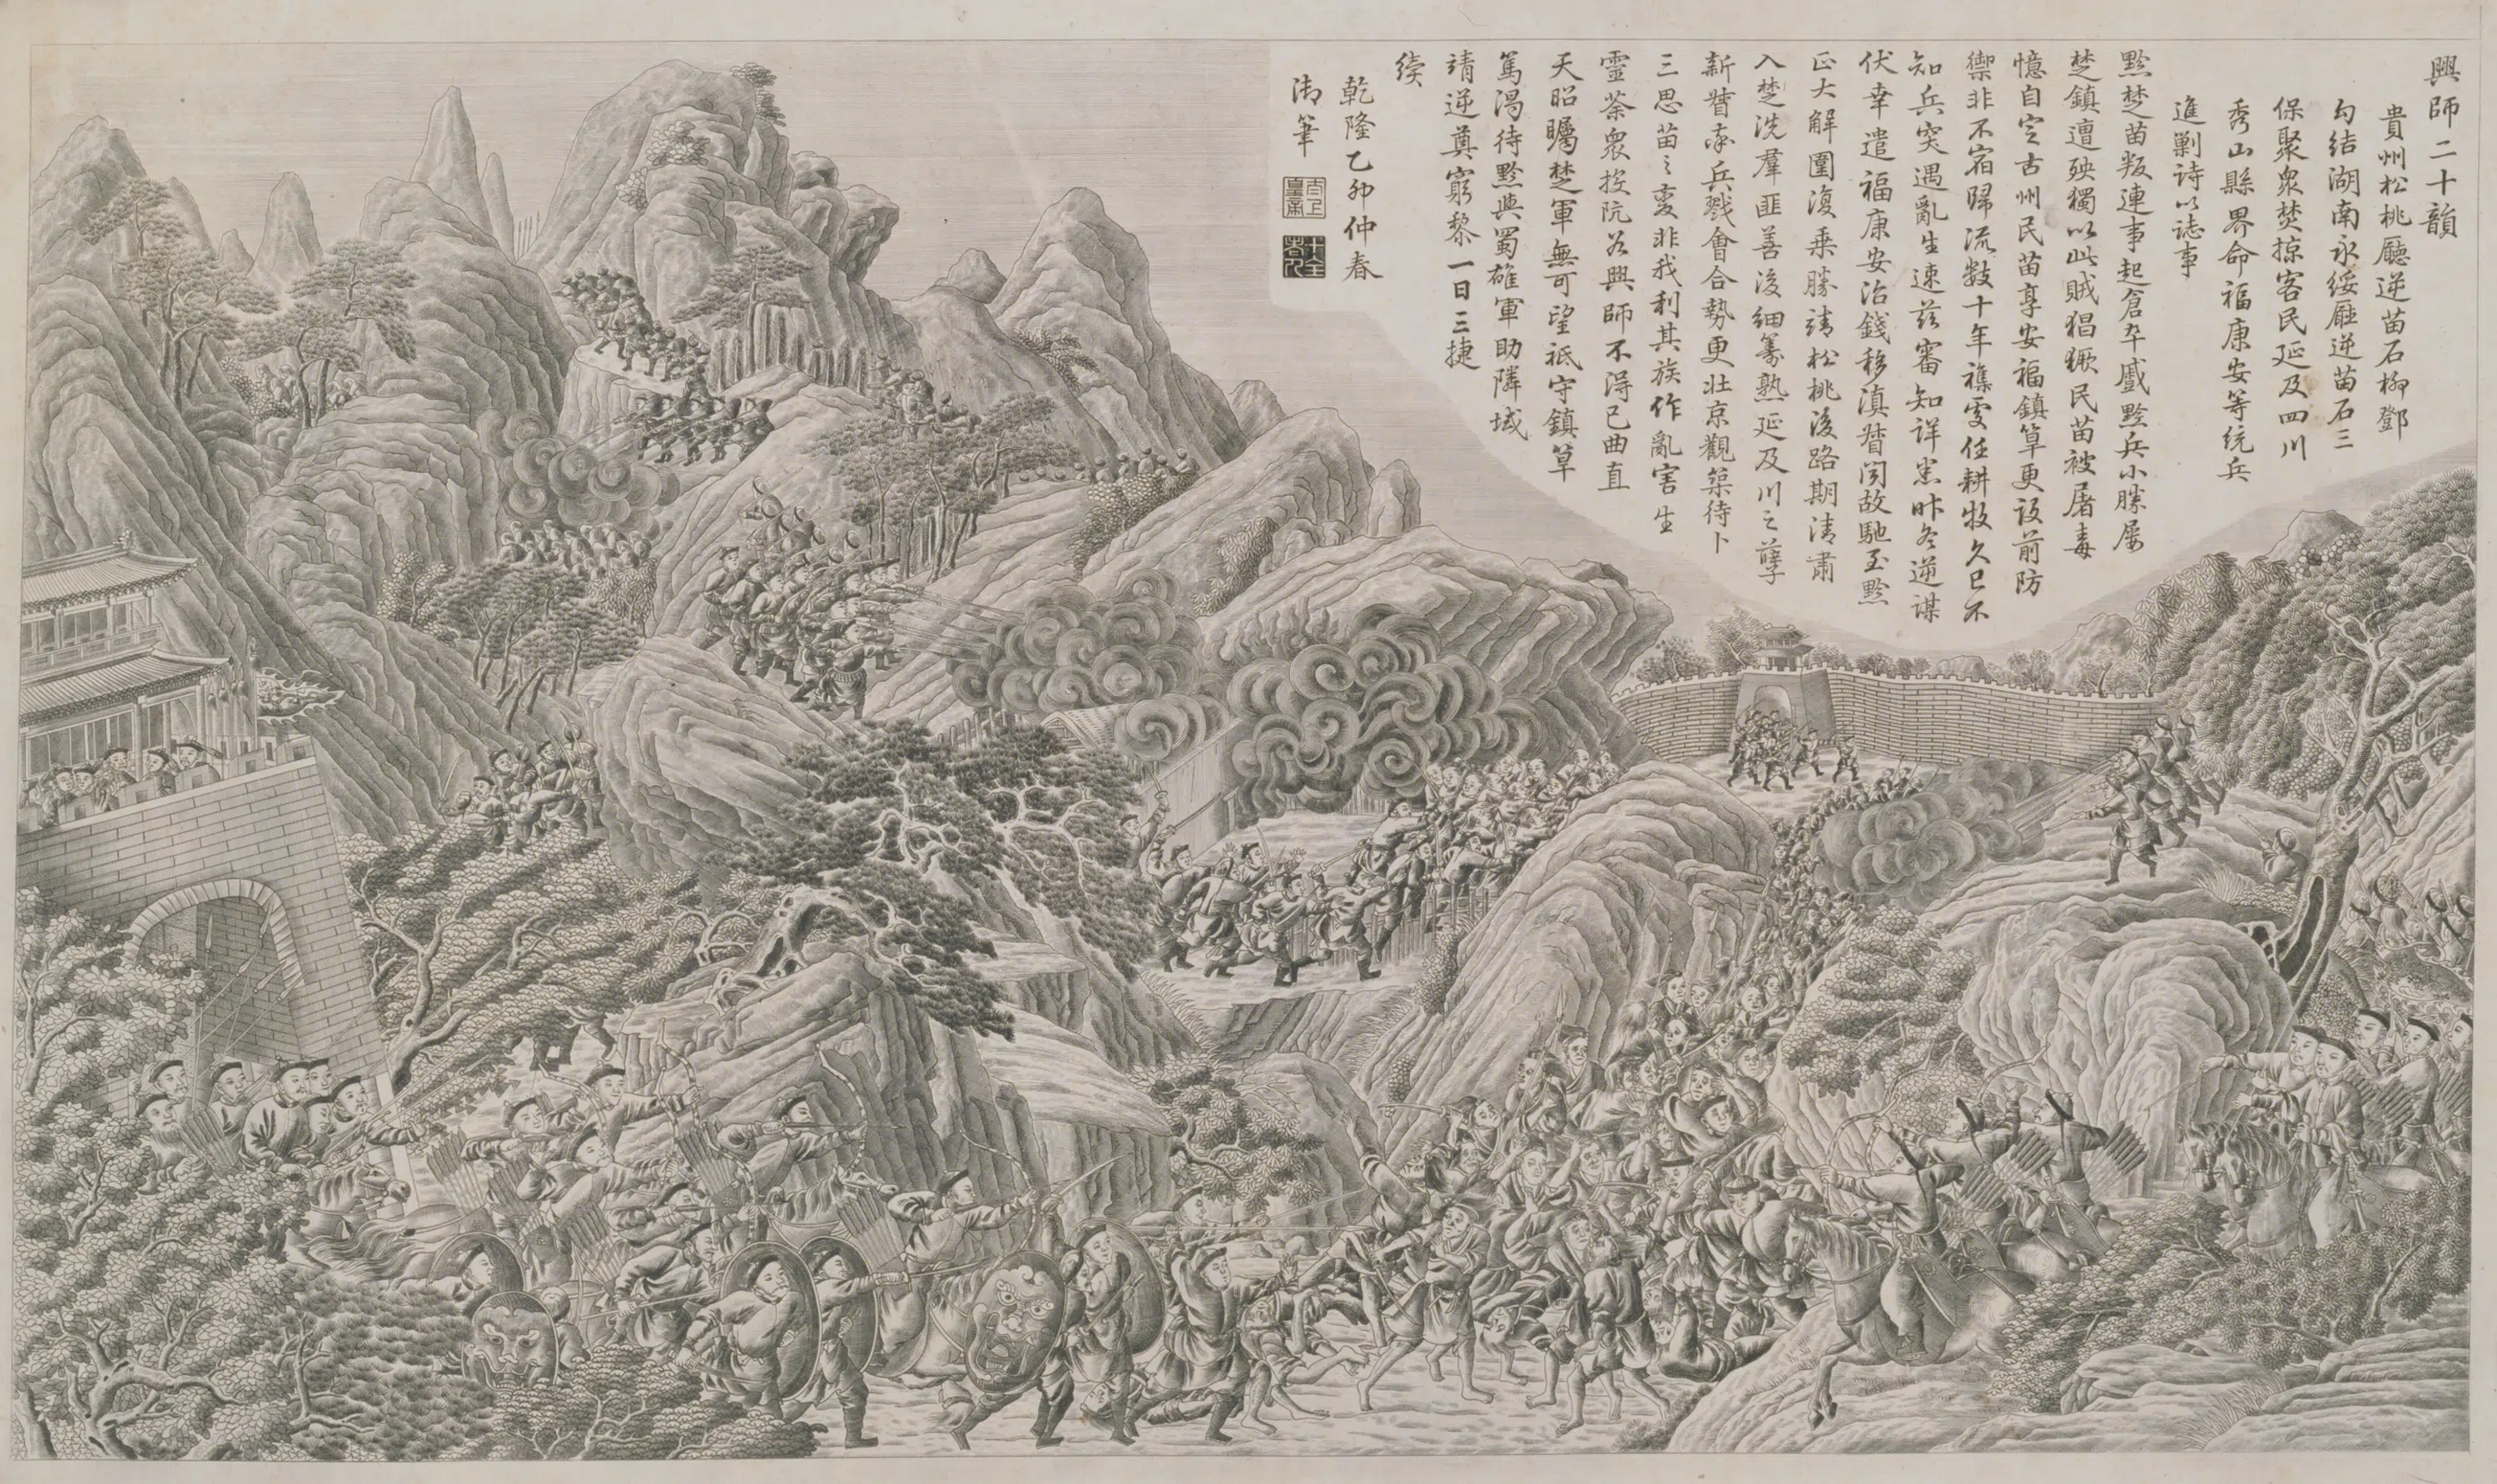 興師二十韻
貴州松桃廳逆苗石柳鄧
勾結湖南永綏廳逆苗石三
保聚衆焚掠客民延及四川
秀山縣界命福康安等統兵
進剿詩以誌事
黔楚苗叛連事起倉卒戲黔兵小勝屢
楚鎮遭殃獨以此賊猖獗民苗被屠毒
憶自定古州民苗享安福鎮筸更設前防
禦非不宿歸流數十年襍雯任耕牧久已不
知兵突遇亂生速茲審知詳悉昨冬逆謀
伏幸遣福康安治錢移滇督閱故馳至黔
正大解圍復乘勝靖松桃後路期清肅
入楚洗羣匪善後細籌熟延及川之孽
新督率兵戮會合勢更壯京觀築待卜
三思苗之變非我利其族作亂害生
靈荼衆投阬若興師不得已曲直
天昭矚楚軍無可望祇守鎮筸
篤渴待黔與蜀雄軍助隣域
靖逆奠窮黎一日三捷
續
乾隆乙卯仲春
御筆